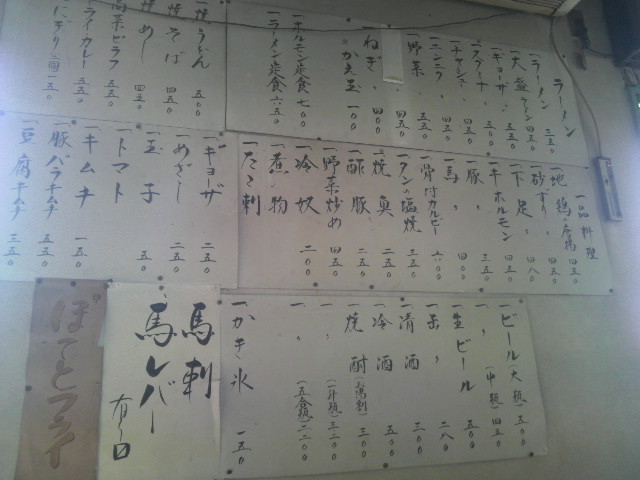 ラーメン
一ラーメン 三五〇
一大盛ラーメン 四五〇
一ギョーザ〃 五五〇
一スタミナ〃 四五〇
一チャーシュー〃 四五〇
一ニンニク〃 四五〇
一野菜〃 四五〇
一ねぎ〃 四〇〇
※かえ玉 一〇〇
一ホルモン定食 七〇〇
一ラーメン定食 六五〇
一焼うどん 五〇〇
一焼そば 四五〇
一焼めし 四五〇
高菜ピラフ 五五〇
一カレー 五五〇
一品料理
砂ずり 四五〇
一下足 四八〇
一牛ホルモン 四五〇
一豚〃 三五〇
一馬〃 四〇〇
一骨付カルビー 六〇〇
一タンの塩焼 三五〇
一焼魚 二五〇
一酢豚 二五〇
一野菜炒め 四五〇
一冷奴 二〇〇
一煮物
一たこ刺
ギョーザ 二五〇
一めざし 二五〇
一玉子 五〇
一トマト
一キムチ 一五〇
一豚バラキムチ 五五〇
一豆腐キムチ 三五〇
一ビール(大瓶) 五〇〇
一〃(中瓶) 四五〇
一生ビール 五〇〇
一〃 二八〇
一清酒 三〇〇
一冷酒 五〇〇
一焼酎(お湯割) 三〇〇
一〃(一升瓶) 三二〇〇
一〃(五合瓶) 二二〇〇
一かき氷 一五〇
馬刺
馬レバー
有〼
ぽてとフライ